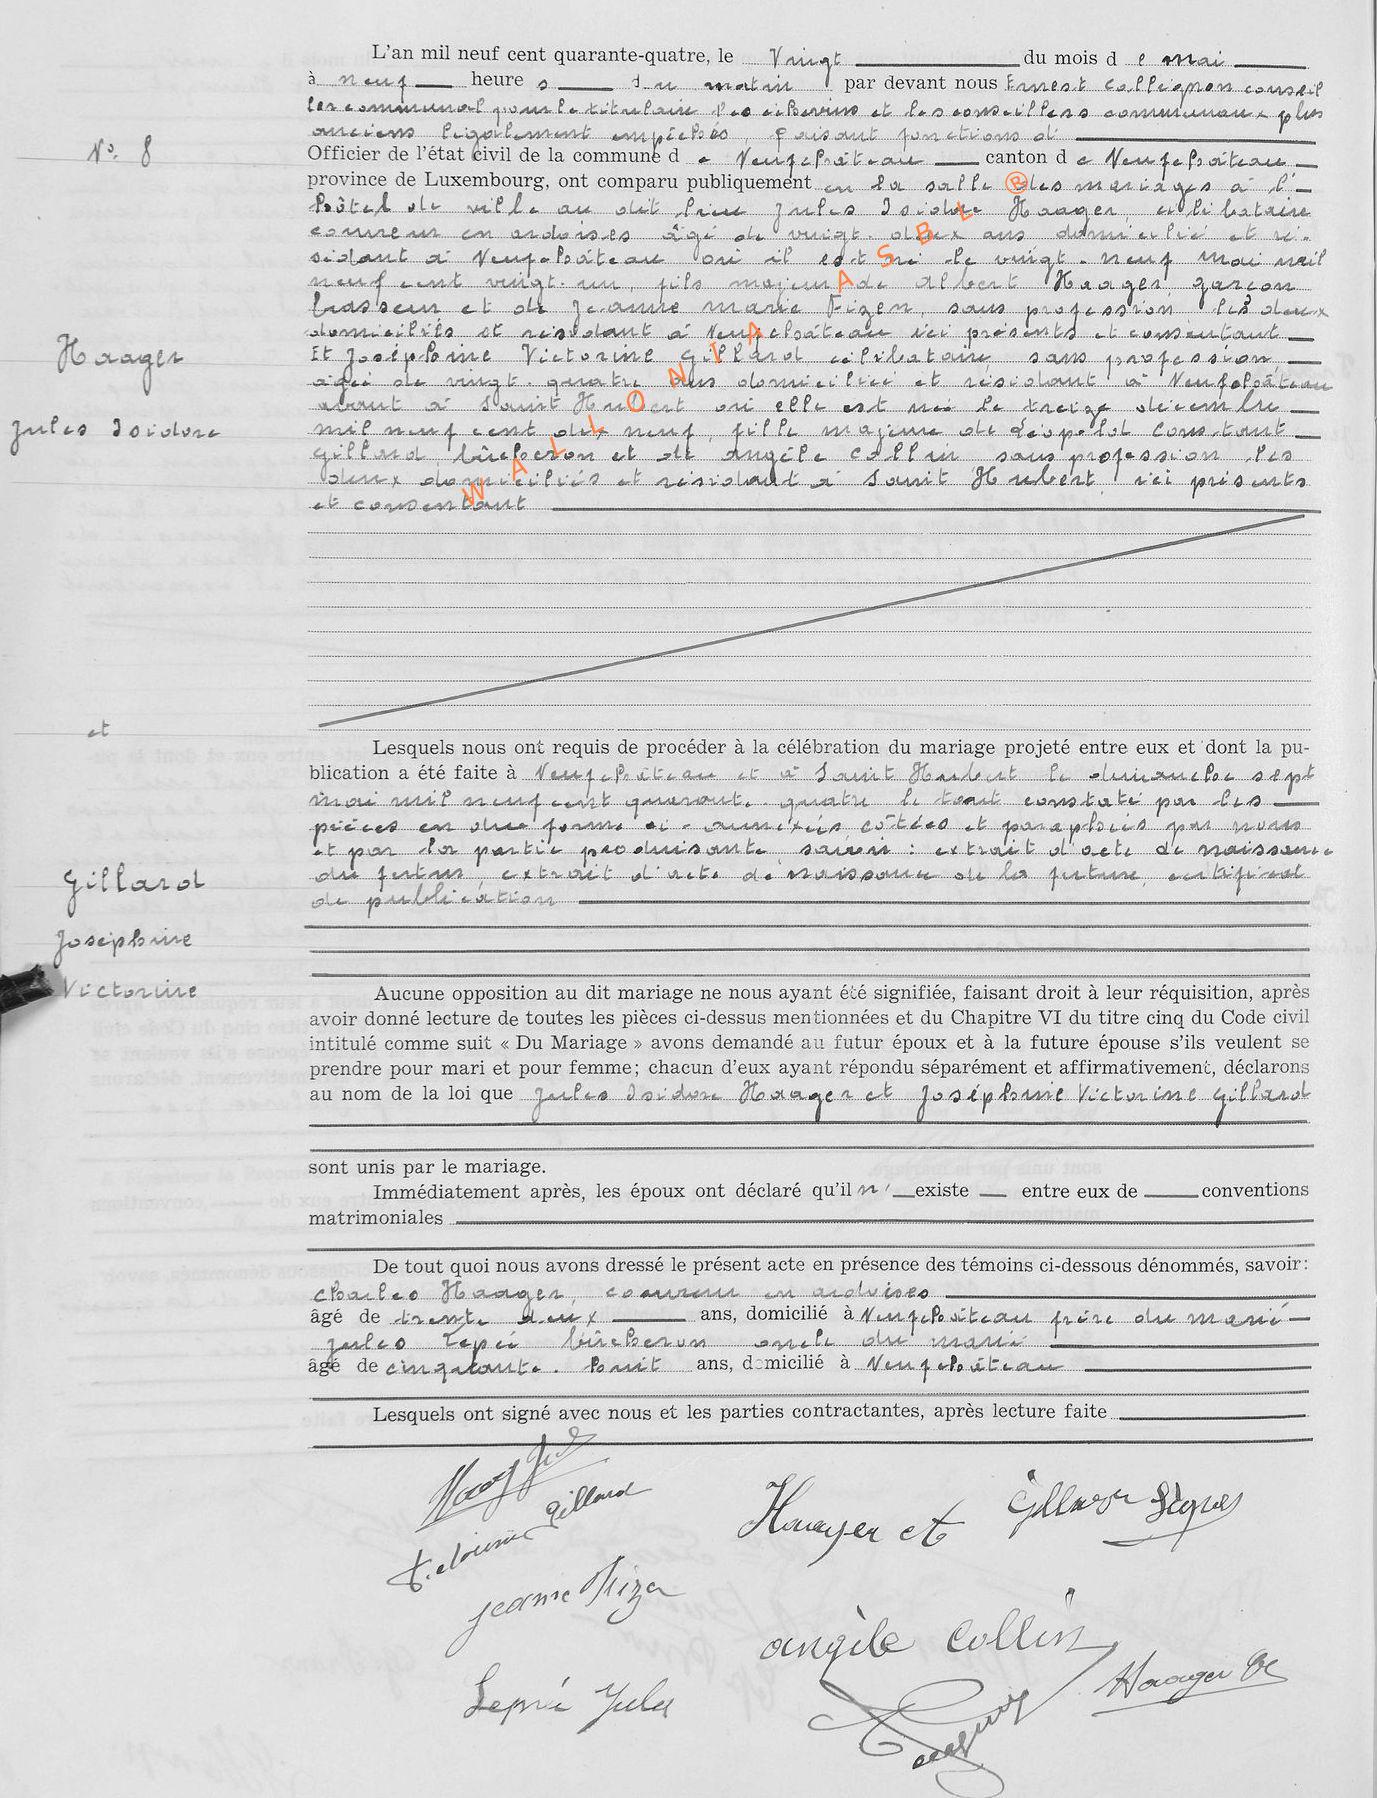 L'an mil neuf cent quarante-quatre, le Vingt du mois d e mai
à neuf heure s du matin par devant nous Ernest Collignon conseil
ler communal pour le titulaire les échevins et les conseillers communaux plus
anciens légalement empêchés faisant fonctions d'
N° 8
Officier de l'état civil de la commune d e Neufchâteau canton d e Neufchâteau
province de Luxembourg, ont comparu publiquement en la salle des mariages à l'
hôtel de ville au dit lieu Jules Isidore Haager, célibataire
couvreur en ardoises âgé de vingt-deux ans domicilié et ré-
sidant à Neufchâteau où il est né le vingt-neuf mai mil
neuf cent vingt-un, fils majeur de Albert Haager garçon
brasseur et de Jeanne Marie Fizen, sans profession les deux
domiciliés et résidant à Neufchâteau ici présents et consentant
Haager
Et Joséphine Victorine Gillard célibataire sans profession,
âgée de vingt-quatre ans domiciliée et résidant à Neufchâteau
avant à Saint Hubert où elle est née le treize décembre
Jules Isidore
mil neuf cent dix neuf, fille majeure de Léopold Constant
Gillard, bûcheron et de Angèle Collin sans profession les
deux domiciliés et résidant à Saint Hubert ici présents
et consentant
WALLONIA ASBL ®
et
Lesquels nous ont requis de procéder à la célébration du mariage projeté entre eux et dont la pu-
blication a été faite à Neufchâteau et à Saint Hubert le dimanche sept
mai mil neuf cent quarante-quatre le tout constaté par les
pièces en due forme ci-annexées, côtées et paraphées par nous
et par la partie produisante, savoir : extrait d'acte de naissance
Gillard
du futur, extrait d'acte de naissance de la future, certificat
de publication
Joséphine
Victorine
Aucune opposition au dit mariage ne nous ayant été signifiée, faisant droit à leur réquisition, après
avoir donné lecture de toutes les pièces ci-dessus mentionnées et du Chapitre VI du titre cinq du Code civil
intitulé comme suit « Du Mariage » avons demandé au futur époux et à la future épouse s'ils veulent se
prendre pour mari et pour femme; chacun d'eux ayant répondu séparément et affirmativement, déclarons
au nom de la loi que Jules Isidore Haager et Joséphine Victorine Gillard
sont unis par le mariage.
Immédiatement après, les époux ont déclaré qu'il n' existe entre eux de conventions
matrimoniales
De tout quoi nous avons dressé le présent acte en présence des témoins ci-dessous dénommés, savoir:
Charles Haager, couvreur en ardoises
âgé de trente deux ans, domicilié à Neufchâteau frère du marié
Jules Lepré bûcheron oncle du marié
âgé de cinquante-huit ans, domicilié à Neufchâteau
Lesquels ont signé avec nous et les parties contractantes, après lecture faite
Gillard
Haager et
Jeanne Fizen
Angèle Collin
Haager
Lepré Jules